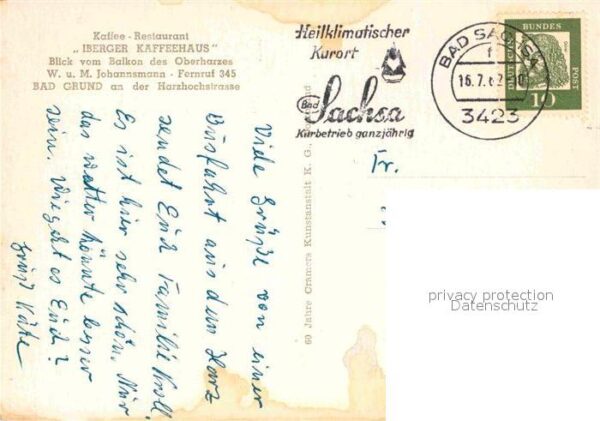 Kaffee - Restaurant
„IBERGER KAFFEEHAUS"
Blick vom Balkon des Oberharzes
W. u. M. Johannsmann - Fernruf 345
BAD GRUND an der Harzhochstrasse
Heilklimatischer
Kurort
Bad
Sachsa
Kurbetrieb ganzjährig
BAD SACHSA
16.7.62
3423
DEUTSCHE
BUNDES
POST
10
Viele Grüße von einer
Busfahrt aus dem Harz
sendet Euch Familie Kroll.
Es ist hier sehr schön. Nur
das Wetter könnte besser
sein. Wie geht es Euch?
Gruß Käte
60 Jahre Cramers Kunstanstalt K. G.,
Fr.
privacy protection
Datenschutz